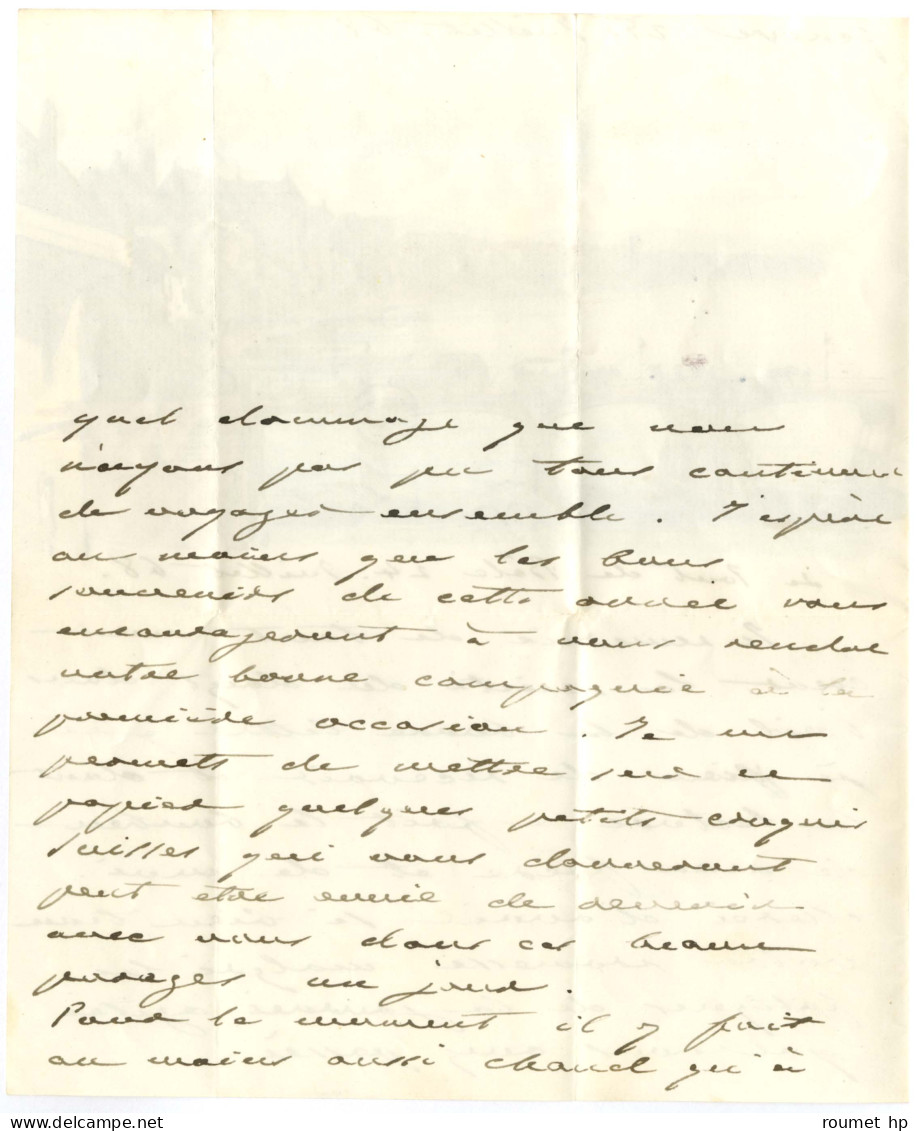 quel dommage que nous
n'ayons pas pu tous continuer
de voyager ensemble. J'espère
au moins que les bons
souvenirs de cette année vous
encourageront à nous rendre
votre bonne compagnie à la
première occasion. Je me
permets de mettre sur ce
papier quelques petits croquis
Suisses qui vous donneront
peut être envie de revenir
avec nous dans ces beaux
parages un jour.
Pour le moment il y fait
au moins aussi chaud qu'à
www.delcampe.net
roumet hp